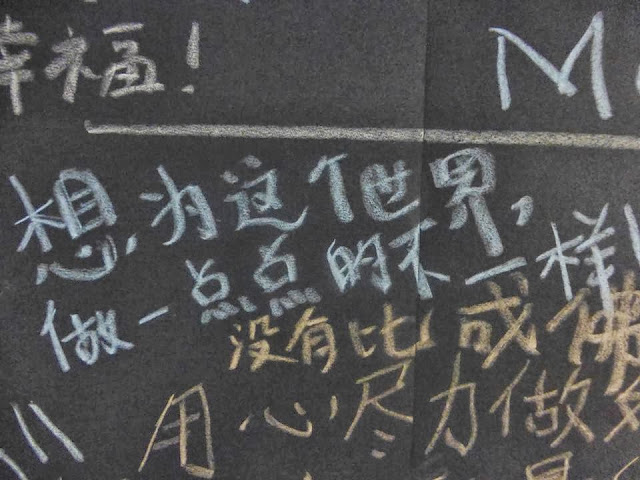 幸福！
M
想，为这个世界，
做一点点的不一样！
没有比成佛
用心，尽力做